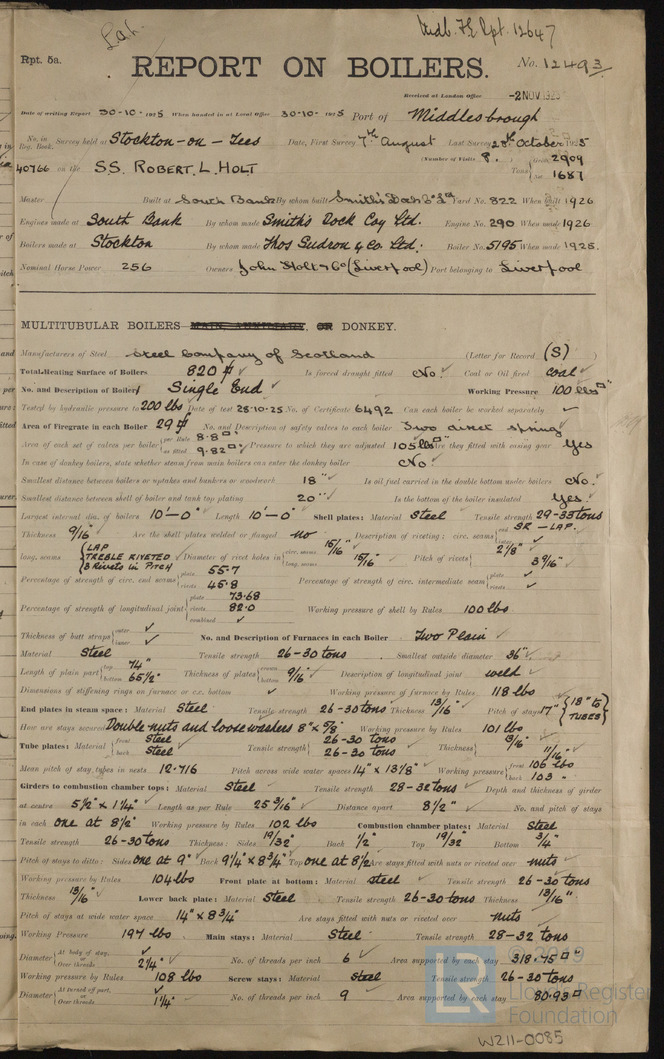 Lah.
Midb. FE Rpt. 12647
Rpt. 5a.
REPORT ON BOILERS.
No. 12493
Received at London Office -2 NOV 1925
Date of writing Report 30-10-1925 When handed in at Local Office 30-10-1925 Port of Middlesbrough
No. in Reg. Book. Survey held at Stockton-on-Tees Date, First Survey 7th August Last Survey 28th October 1925
40766 on the S.S. ROBERT. L. HOLT (Number of Visits 8.) Tons Gross 2909 Net 1687
Master Built at South Bank By whom built Smith's Dock Co Ltd Yard No. 822 When built 1926
Engines made at South Bank By whom made Smith's Dock Coy Ltd. Engine No. 290 When made 1926
Boilers made at Stockton By whom made Thos Sudron & Co. Ltd. Boiler No. 5195 When made 1925.
Nominal Horse Power 256 Owners John Holt & Co (Liverpool) Port belonging to Liverpool
MULTITUBULAR BOILERS MAIN, AUXILIARY, OR DONKEY.
Manufacturers of Steel Steel Company of Scotland (Letter for Record (S) )
Total Heating Surface of Boilers 820 Is forced draught fitted No. Coal or Oil fired coal
No. and Description of Boilers 1 Single End Working Pressure 100 lbs □"
Tested by hydraulic pressure to 200 lbs Date of test 28-10-25 No. of Certificate 6492 Can each boiler be worked separately ✓
Area of Firegrate in each Boiler 29 No. and Description of safety valves to each boiler Two direct spring
Area of each set of valves per boiler per Rule 8.8 □" as fitted 9.82 □" Pressure to which they are adjusted 105 lbs □" Are they fitted with easing gear Yes
In case of donkey boilers, state whether steam from main boilers can enter the donkey boiler No.
Smallest distance between boilers or uptakes and bunkers or woodwork 18" Is oil fuel carried in the double bottom under boilers No.
Smallest distance between shell of boiler and tank top plating 20" Is the bottom of the boiler insulated Yes.
Largest internal dia. of boilers 10'-0" Length 10'-0" Shell plates: Material Steel Tensile strength 29-33 tons
Thickness 9/16" Are the shell plates welded or flanged no Description of riveting: circ. seams end SR-LAP. inter. ✓
long. seams LAP TREBLE RIVETED 3 Rivets in Pitch Diameter of rivet holes in circ. seams 15/16" long. seams 15/16" Pitch of rivets 2 1/8" 3 9/16"
Percentage of strength of circ. end seams plate 55.7 rivets 45.8 Percentage of strength of circ. intermediate seam plate ✓ rivets ✓
Percentage of strength of longitudinal joint plate 73.68 rivets 82.0 combined ✓ Working pressure of shell by Rules 100 lbs
Thickness of butt straps outer ✓ inner ✓ No. and Description of Furnaces in each Boiler Two Plain
Material Steel Tensile strength 26-30 tons Smallest outside diameter 36"
Length of plain part top 74" bottom 65 1/2" Thickness of plates crown bottom 9/16" Description of longitudinal joint weld
Dimensions of stiffening rings on furnace or c.c. bottom ✓ Working pressure of furnace by Rules 118 lbs
End plates in steam space: Material Steel Tensile strength 26-30 tons Thickness 13/16" Pitch of stays 17" {18" to TUBES}
How are stays secured Double nuts and loose washers 8" x 5/8" Working pressure by Rules 101 lbs
Tube plates: Material front Steel back Steel Tensile strength 26-30 tons 26-30 tons Thickness 13/16" 11/16"
Mean pitch of stay tubes in nests 12.716 Pitch across wide water spaces 14" x 13 1/8" Working pressure front 106 lbs back 103 "
Girders to combustion chamber tops: Material Steel Tensile strength 28-32 tons Depth and thickness of girder
at centre 5 1/2" x 1 1/4" Length as per Rule 25 3/16" Distance apart 8 1/2" No. and pitch of stays
in each one at 8 1/2" Working pressure by Rules 102 lbs Combustion chamber plates: Material Steel
Tensile strength 26-30 tons Thickness: Sides 19/32" Back 1/2" Top 19/32" Bottom 3/4"
Pitch of stays to ditto: Sides one at 9" Back 9 1/4" x 8 3/4" Top one at 8 1/2 Are stays fitted with nuts or riveted over nuts
Working pressure by Rules 104 lbs Front plate at bottom: Material Steel Tensile strength 26-30 tons
Thickness 13/16" Lower back plate: Material Steel Tensile strength 26-30 tons Thickness 13/16"
Pitch of stays at wide water space 14" x 8 3/4" Are stays fitted with nuts or riveted over nuts
Working Pressure 197 lbs Main stays: Material Steel Tensile strength 28-32 tons
Diameter At body of stay, or Over threads 2 1/4" No. of threads per inch 6 Area supported by each stay 318.75 □"
Working pressure by Rules 108 lbs Screw stays: Material Steel Tensile strength 26-30 tons
Diameter At turned off part, or Over threads 1 1/4" No. of threads per inch 9 Area supported by each stay 80.93 □
© 2019
LR
Lloyd's Register
Foundation
W211-0085